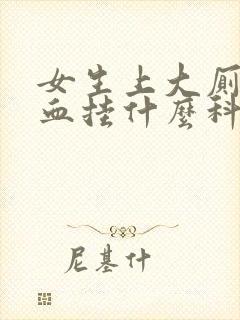 女生上大厕
血挂什麼科
尼基什